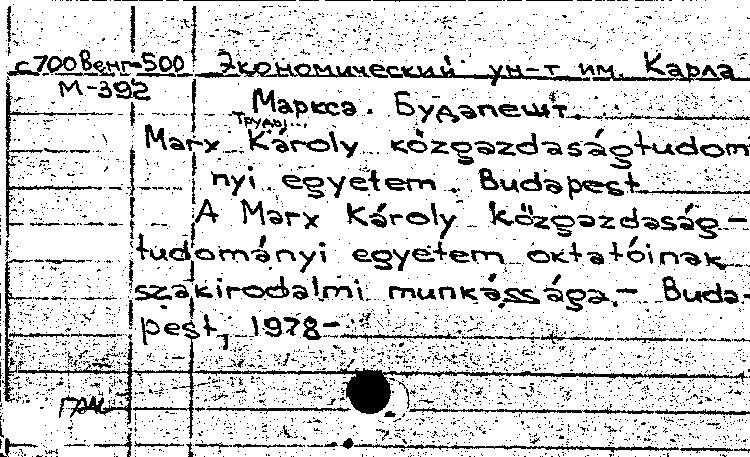 с700Венг-500 Экономический ун-т им. Карла
М-392
Маркса. Будапешт.
Труды...
Marx Károly közgazdaságtudom
nyi egyetem. Budapest
A Marx Károly közgazdaság-
tudományi egyetem oktatóinak
szakirodalmi munkássága.- Buda-
pest, 1978-